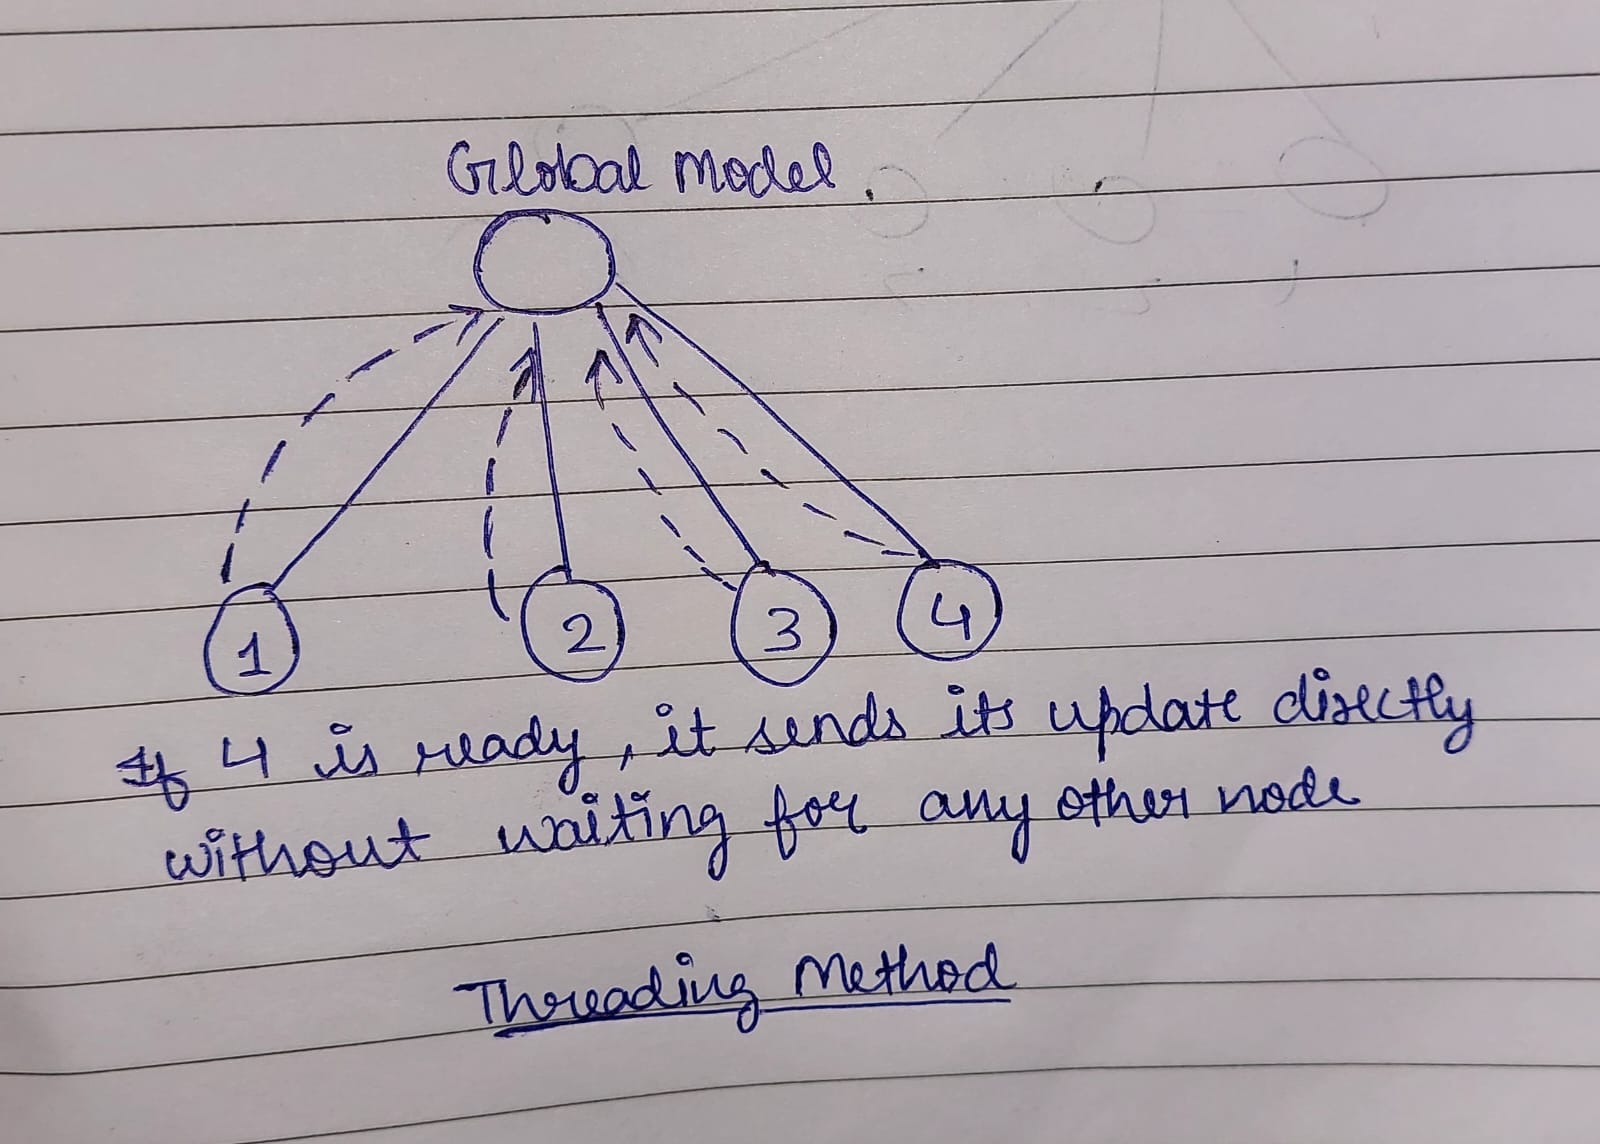 Global Model.
1 2 3 4
If 4 is ready, it sends its update directly
without waiting for any other node
Threading Method